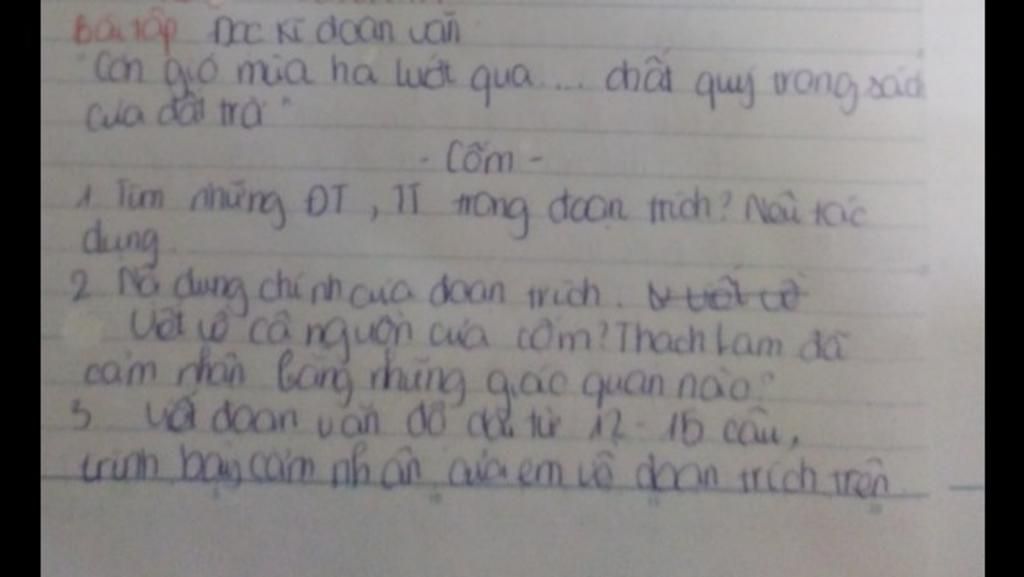 Bài tập Đọc kĩ đoạn văn
"Cơn gió mùa hạ lướt qua.... chất quý trong sạch
của đất trời"
- Cốm -
1 Tìm những ĐT, TT trong đoạn trích? Nêu tác
dụng
2 Nội dung chính của đoạn trích. Viết về
Viết về cội nguồn của cốm? Thạch Lam đã
cảm nhận bằng những giác quan nào?
3 Viết đoạn văn độ dài từ 12-15 câu,
trình bày cảm nhận của em về đoạn trích trên